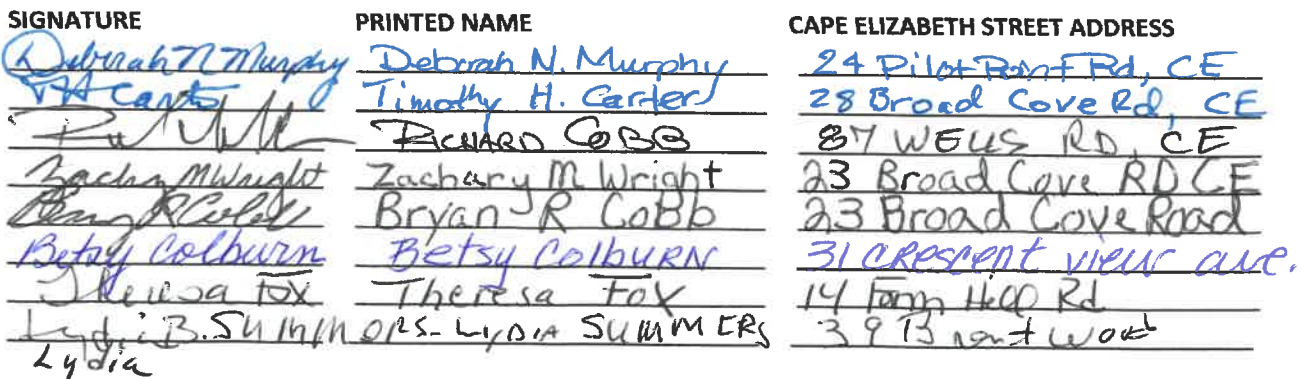 SIGNATURE PRINTED NAME CAPE ELIZABETH STREET ADDRESS
Deborah N Murphy Deborah N. Murphy 24 Pilot Point Rd, CE
TH Carter Timothy H. Carter 28 Broad Cove Rd, CE
RICHARD COBB 87 WELLS RD, CE
Zachary M Wright Zachary M Wright 23 Broad Cove RD CE
Bryan R Cobb Bryan R Cobb 23 Broad Cove Road
Betsy Colburn Betsy ColbuRN 31 CRescent view ave.
Theresa Fox Theresa Fox 14 Farm Hill Rd
Lydia B. Summers - LyDIA SUMMERS 39 Brentwood
Lydia